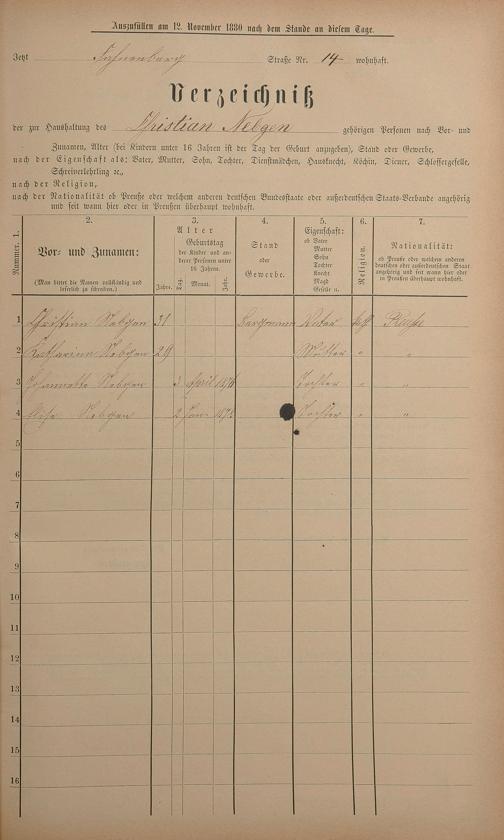 Auszufüllen am 12. November 1880 nach dem Stande an diesem Tage.
Jetzt Straße Nr. 14 wohnhaft.
Verzeichniß
der zur Haushaltung des Christian Nebgen gehörigen Personen nach Vor- und
Zunamen, Alter (bei Kindern unter 16 Jahren ist der Tag der Geburt anzugeben), Stand oder Gewerbe,
nach der Eigenschaft als: Vater, Mutter, Sohn, Tochter, Dienstmädchen, Hausknecht, Köchin, Diener, Schlossergeselle,
Schreinerlehrling ꝛc.,
nach der Religion,
nach der Nationalität ob Preuße oder welchem anderen deutschen Bundesstaate oder außerdeutschen Staats-Verbande angehörig
und seit wann hier oder in Preußen überhaupt wohnhaft.
Nummer. 1.
2.
Vor- und Zunamen:
(Man bittet die Namen vollständig und
leserlich zu schreiben.)
3.
Alter
Jahre.
Geburtstag
der Kinder und an-
derer Personen unter
16 Jahren.
Tag
Monat.
Jahr.
4.
Stand
oder
Gewerbe.
5.
Eigenschaft:
ob Vater
Mutter
Sohn
Tochter
Knecht
Magd
Geselle u.
6.
Religion.
7.
Nationalität:
ob Preuße oder welchem anderen
deutschen oder außerdeutschen Staat
angehörig und seit wann hier oder
in Preußen überhaupt wohnhaft.
1 Christian Nebgen 31 Bergmann Vater kath Preuße
2 Katharina Nebgen 29 Mutter " "
3 Johannette Nebgen 3 April 1876 Tochter " "
4 Nebgen 2 Tochter " "
5
6
7
8
9
10
11
12
13
14
15
16